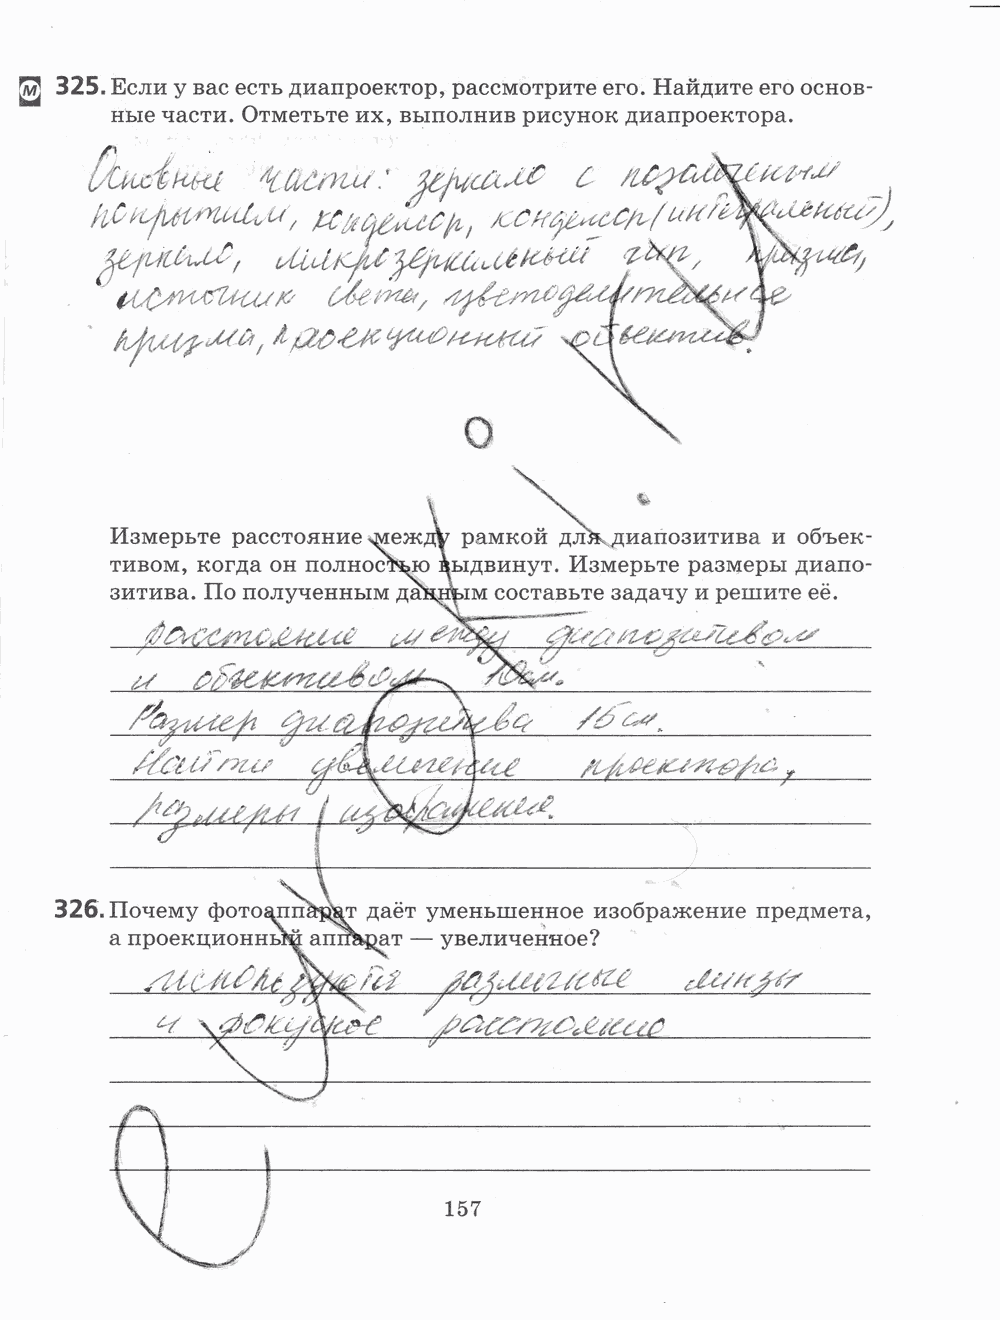 М 325. Если у вас есть диапроектор, рассмотрите его. Найдите его основ-
ные части. Отметьте их, выполнив рисунок диапроектора.
Основные части: зеркало с позолоченым
покрытием, конденсор, конденсор (интегральный),
зеркало, микрозеркальный чип, призма,
источник света, цветоделительное
призма, проекционный объектив.
Измерьте расстояние между рамкой для диапозитива и объек-
тивом, когда он полностью выдвинут. Измерьте размеры диапо-
зитива. По полученным данным составьте задачу и решите её.
расстояние между диапозитивом
и объективом 10см.
Размер диапозитива 15 см.
Найти увеличение проектора,
размеры изображения.
326. Почему фотоаппарат даёт уменьшенное изображение предмета,
а проекционный аппарат — увеличенное?
используются различные линзы
и фокусное расстояние
157